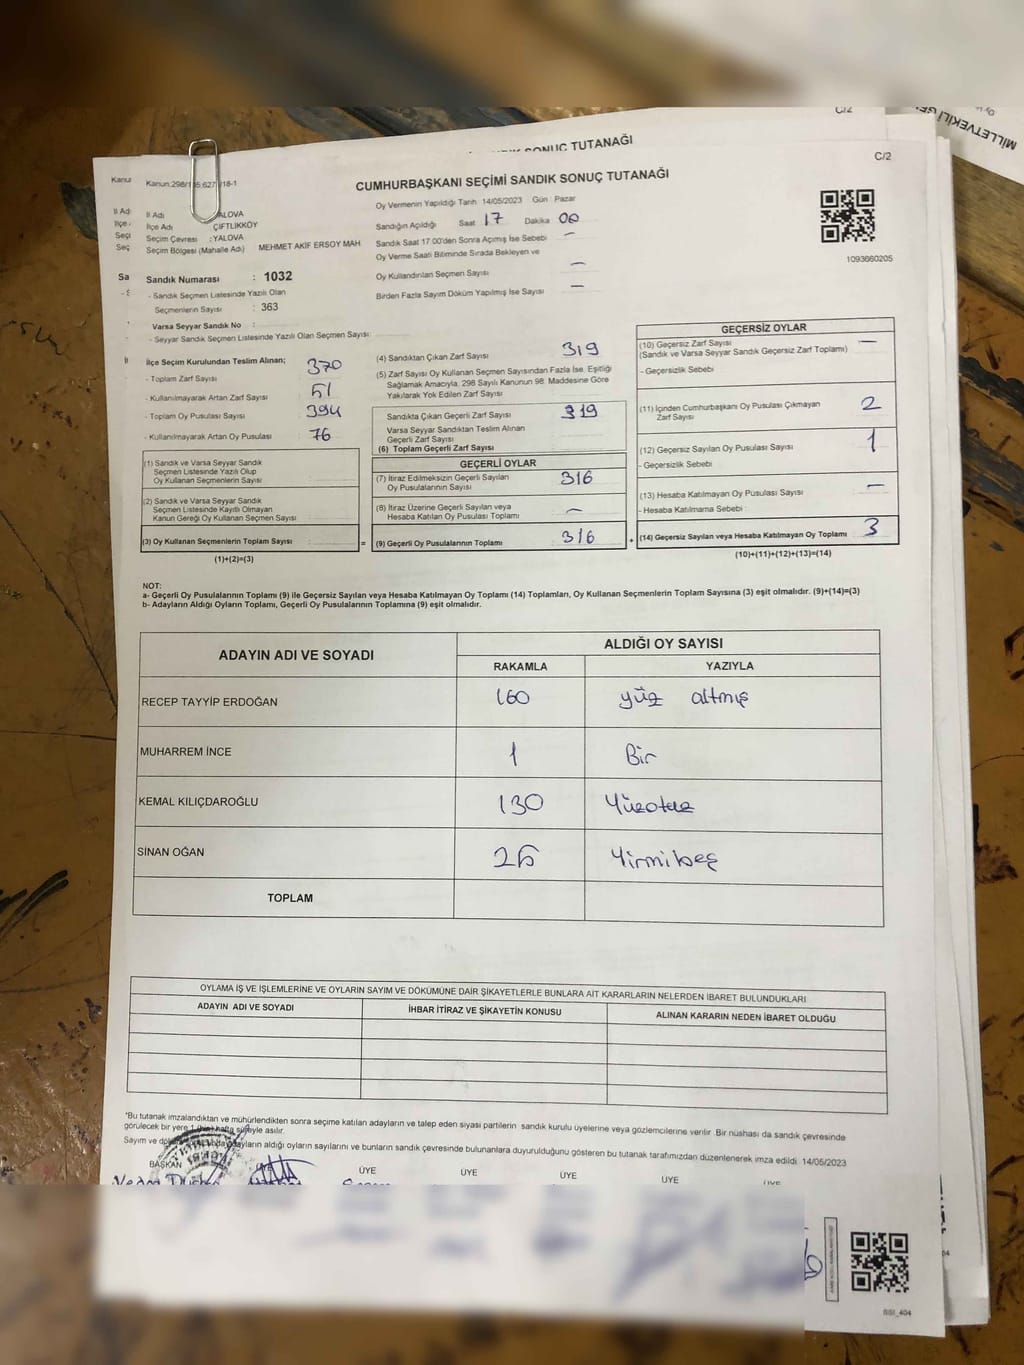 C/2
MİLLETVEKİLİ
SONUÇ TUTANAĞI
C/2
Kanu
Kanun:298/
CUMHURBAŞKANI SEÇİMİ SANDIK SONUÇ TUTANAĞI
İl Adı YALOVA
İlçe Adı ÇİFTLİKKÖY
Seçim Çevresi :YALOVA
Seçim Bölgesi (Mahalle Adı) MEHMET AKİF ERSOY MAH
Oy Vermenin Yapıldığı Tarih 14/05/2023 Gün Pazar
Sandığın Açıldığı Saat 17 Dakika 00
Sandık Saat 17.00'den Sonra Açımış İse Sebebi —
Oy Verme Saati Bitiminde Sırada Bekleyen ve
Oy Kullandırılan Seçmen Sayısı —
Birden Fazla Sayım Döküm Yapılmış İse Sayısı —
1093660205
Sandık Numarası : 1032
- Sandık Seçmen Listesinde Yazılı Olan
Seçmenlerin Sayısı : 363
Varsa Seyyar Sandık No :
- Seyyar Sandık Seçmen Listesinde Yazılı Olan Seçmen Sayısı:
İlçe Seçim Kurulundan Teslim Alınan;
- Toplam Zarf Sayısı 370
- Kullanılmayarak Artan Zarf Sayısı 51
- Toplam Oy Pusulası Sayısı 394
- Kullanılmayarak Artan Oy Pusulası 76
(1) Sandık ve Varsa Seyyar Sandık
Seçmen Listesinde Yazılı Olup
Oy Kullanan Seçmenlerin Sayısı
(2) Sandık ve Varsa Seyyar Sandık
Seçmen Listesinde Kayıtlı Olmayan
Kanun Gereği Oy Kullanan Seçmen Sayısı
(3) Oy Kullanan Seçmenlerin Toplam Sayısı =
(1)+(2)=(3)
(4) Sandıktan Çıkan Zarf Sayısı 319
(5) Zarf Sayısı Oy Kullanan Seçmen Sayısından Fazla İse, Eşitliği
Sağlamak Amacıyla, 298 Sayılı Kanunun 98. Maddesine Göre
Yakılarak Yok Edilen Zarf Sayısı
Sandıkta Çıkan Geçerli Zarf Sayısı 319
Varsa Seyyar Sandıktan Teslim Alınan
Geçerli Zarf Sayısı
(6) Toplam Geçerli Zarf Sayısı
GEÇERLİ OYLAR
(7) İtiraz Edilmeksizin Geçerli Sayılan
Oy Pusulalarının Sayısı 316
(8) İtiraz Üzerine Geçerli Sayılan veya
Hesaba Katılan Oy Pusulası Toplamı —
(9) Geçerli Oy Pusulalarının Toplamı 316 +
GEÇERSİZ OYLAR
(10) Geçersiz Zarf Sayısı —
(Sandık ve Varsa Seyyar Sandık Geçersiz Zarf Toplamı)
- Geçersizlik Sebebi
(11) İçinden Cumhurbaşkanı Oy Pusulası Çıkmayan
Zarf Sayısı 2
(12) Geçersiz Sayılan Oy Pusulası Sayısı 1
- Geçersizlik Sebebi
(13) Hesaba Katılmayan Oy Pusulası Sayısı —
- Hesaba Katılmama Sebebi :
(14) Geçersiz Sayılan veya Hesaba Katılmayan Oy Toplamı 3
(10)+(11)+(12)+(13)=(14)
NOT:
a- Geçerli Oy Pusulalarının Toplamı (9) ile Geçersiz Sayılan veya Hesaba Katılmayan Oy Toplamı (14) Toplamları, Oy Kullanan Seçmenlerin Toplam Sayısına (3) eşit olmalıdır. (9)+(14)=(3)
b- Adayların Aldığı Oyların Toplamı, Geçerli Oy Pusulalarının Toplamına (9) eşit olmalıdır.
ADAYIN ADI VE SOYADI
ALDIĞI OY SAYISI
RAKAMLA YAZIYLA
RECEP TAYYİP ERDOĞAN 160 yüz altmış
MUHARREM İNCE 1 Bir
KEMAL KILIÇDAROĞLU 130 Yüzotuz
SİNAN OĞAN 25 Yirmibeş
TOPLAM
OYLAMA İŞ VE İŞLEMLERİNE VE OYLARIN SAYIM VE DÖKÜMÜNE DAİR ŞİKAYETLERLE BUNLARA AİT KARARLARIN NELERDEN İBARET BULUNDUKLARI
ADAYIN ADI VE SOYADI İHBAR İTİRAZ VE ŞİKAYETİN KONUSU ALINAN KARARIN NEDEN İBARET OLDUĞU
*Bu tutanak imzalandıktan ve mühürlendikten sonra seçime katılan adayların ve talep eden siyasi partilerin sandık kurulu üyelerine veya gözlemcilerine verilir. Bir nüshası da sandık çevresinde
görülecek bir yere 1 (bir) hafta süreyle asılır.
Sayım ve adayların aldığı oyların sayılarını ve bunların sandık çevresinde bulunanlara duyurulduğunu gösteren bu tutanak tarafımızdan düzenlenerek imza edildi. 14/05/2023
BAŞKAN ÜYE ÜYE ÜYE ÜYE ÜYE ÜYE
BSI_404